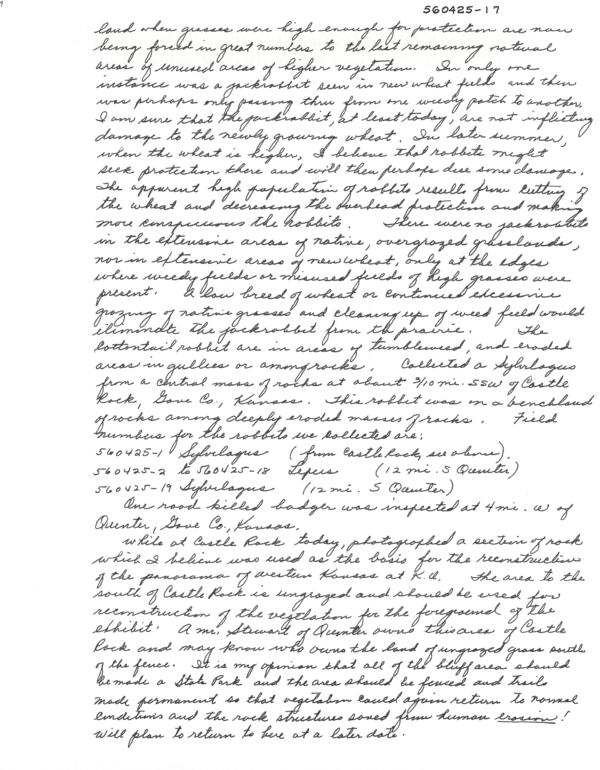 560425-17
land when grasses were high enough for protection are now
being forced in great numbers to the last remaining natural
areas of unused areas of higher vegetation. In only one
instance was a jackrabbit seen in new wheat fields and then
was perhaps only passing thru from one weedy patch to another.
I am sure that the jackrabbit, at least today, are not inflicting
damage to the newly growing wheat. In later summer,
when the wheat is higher, I believe that rabbits might
seek protection there and will then perhaps do some damage.
The apparent high population of rabbits results from cutting of
the wheat and decreasing the overhead protection and making
more conspicuous the rabbits. There were no jackrabbits
in the extensive areas of native, overgrazed grasslands,
nor in extensive areas of new wheat, only at the edges
where weedy fields or misused fields of high grasses were
present. A low breed of wheat or continued excessive
grazing of native grasses and cleaning up of weed field would
eliminate the jackrabbit from the prairie. The
cottontail rabbit are in areas of tumbleweed, and eroded
areas in gullies or among rocks. Collected a Sylvilagus
from a central mass of rocks at about 3/10 mi. SSW of Castle
Rock, Gove Co., Kansas. This rabbit was on a benchland
of rocks among deeply eroded masses of rocks. Field
numbers for the rabbits we collected are:
560425-1 Sylvilagus (from Castle Rock, see above).
560425-2 to 560425-18 Lepus (12 mi. S Quinter)
560425-19 Sylvilagus (12 mi. S Quinter)
One road killed badger was inspected at 4 mi. W of
Quinter, Gove Co., Kansas.
While at Castle Rock today, photographed a section of rock
which I believe was used as the basis for the reconstruction
of the panorama of western Kansas at K.U. The area to the
south of Castle Rock is ungrazed and should be used for
reconstruction of the vegetation for the foreground of the
exhibit. A Mr. Stewart of Quinter owns this area of Castle
Rock and may know who owns the land of ungrazed grass south
of the fence. It is my opinion that all of the bluff area should
be made a State Park and the area should be fenced and trails
made permanent so that vegetation could again return to normal
conditions and the rock structures saved from human erosion!
Will plan to return to here at a later date.